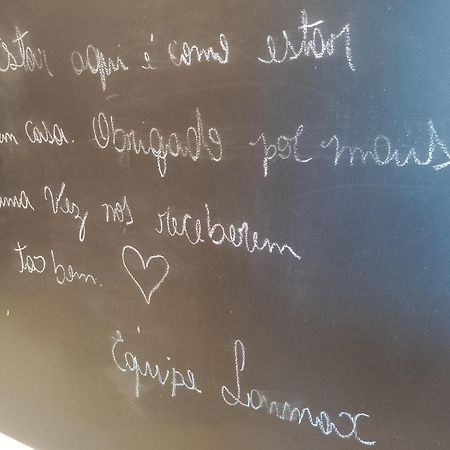 estar aqui é como estar
em casa. Obrigado por mais
uma vez nos receberem
tao bem. ♡
Équipe Lanmax